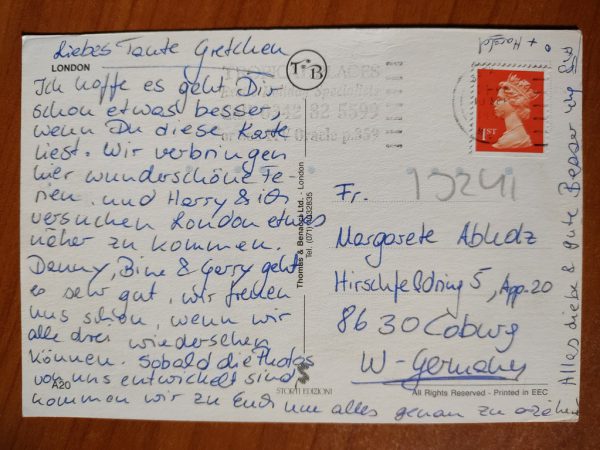 Liebes Tante Gretchen
LONDON
Ich hoffe es geht Dir
schon etwas besser,
wenn Du diese Karte
liest. Wir verbringen
hier wunderschöne Fe-
rien und Harry & ich
versuchen London etwas
näher zu kommen.
Danny, Bine & Gerry geht
es sehr gut, wir freuen
uns schon, wenn wir
alle drei wiedersehen
können. Sobald die Photos
von uns entwickelt sind
kommen wir zu Euch um alles genau zu
A20
T B
0342 82 5599
Oracle p.359
Thomas & Benacci Ltd. - London
Tel. (071)
STORTI EDIZIONI
1ST
19241
Fr.
Margarete
Hirschfeldring 5, App. 20
8630 Coburg
W-Germany
All Rights Reserved - Printed in EEC
Alles Liebe & gute Besserung